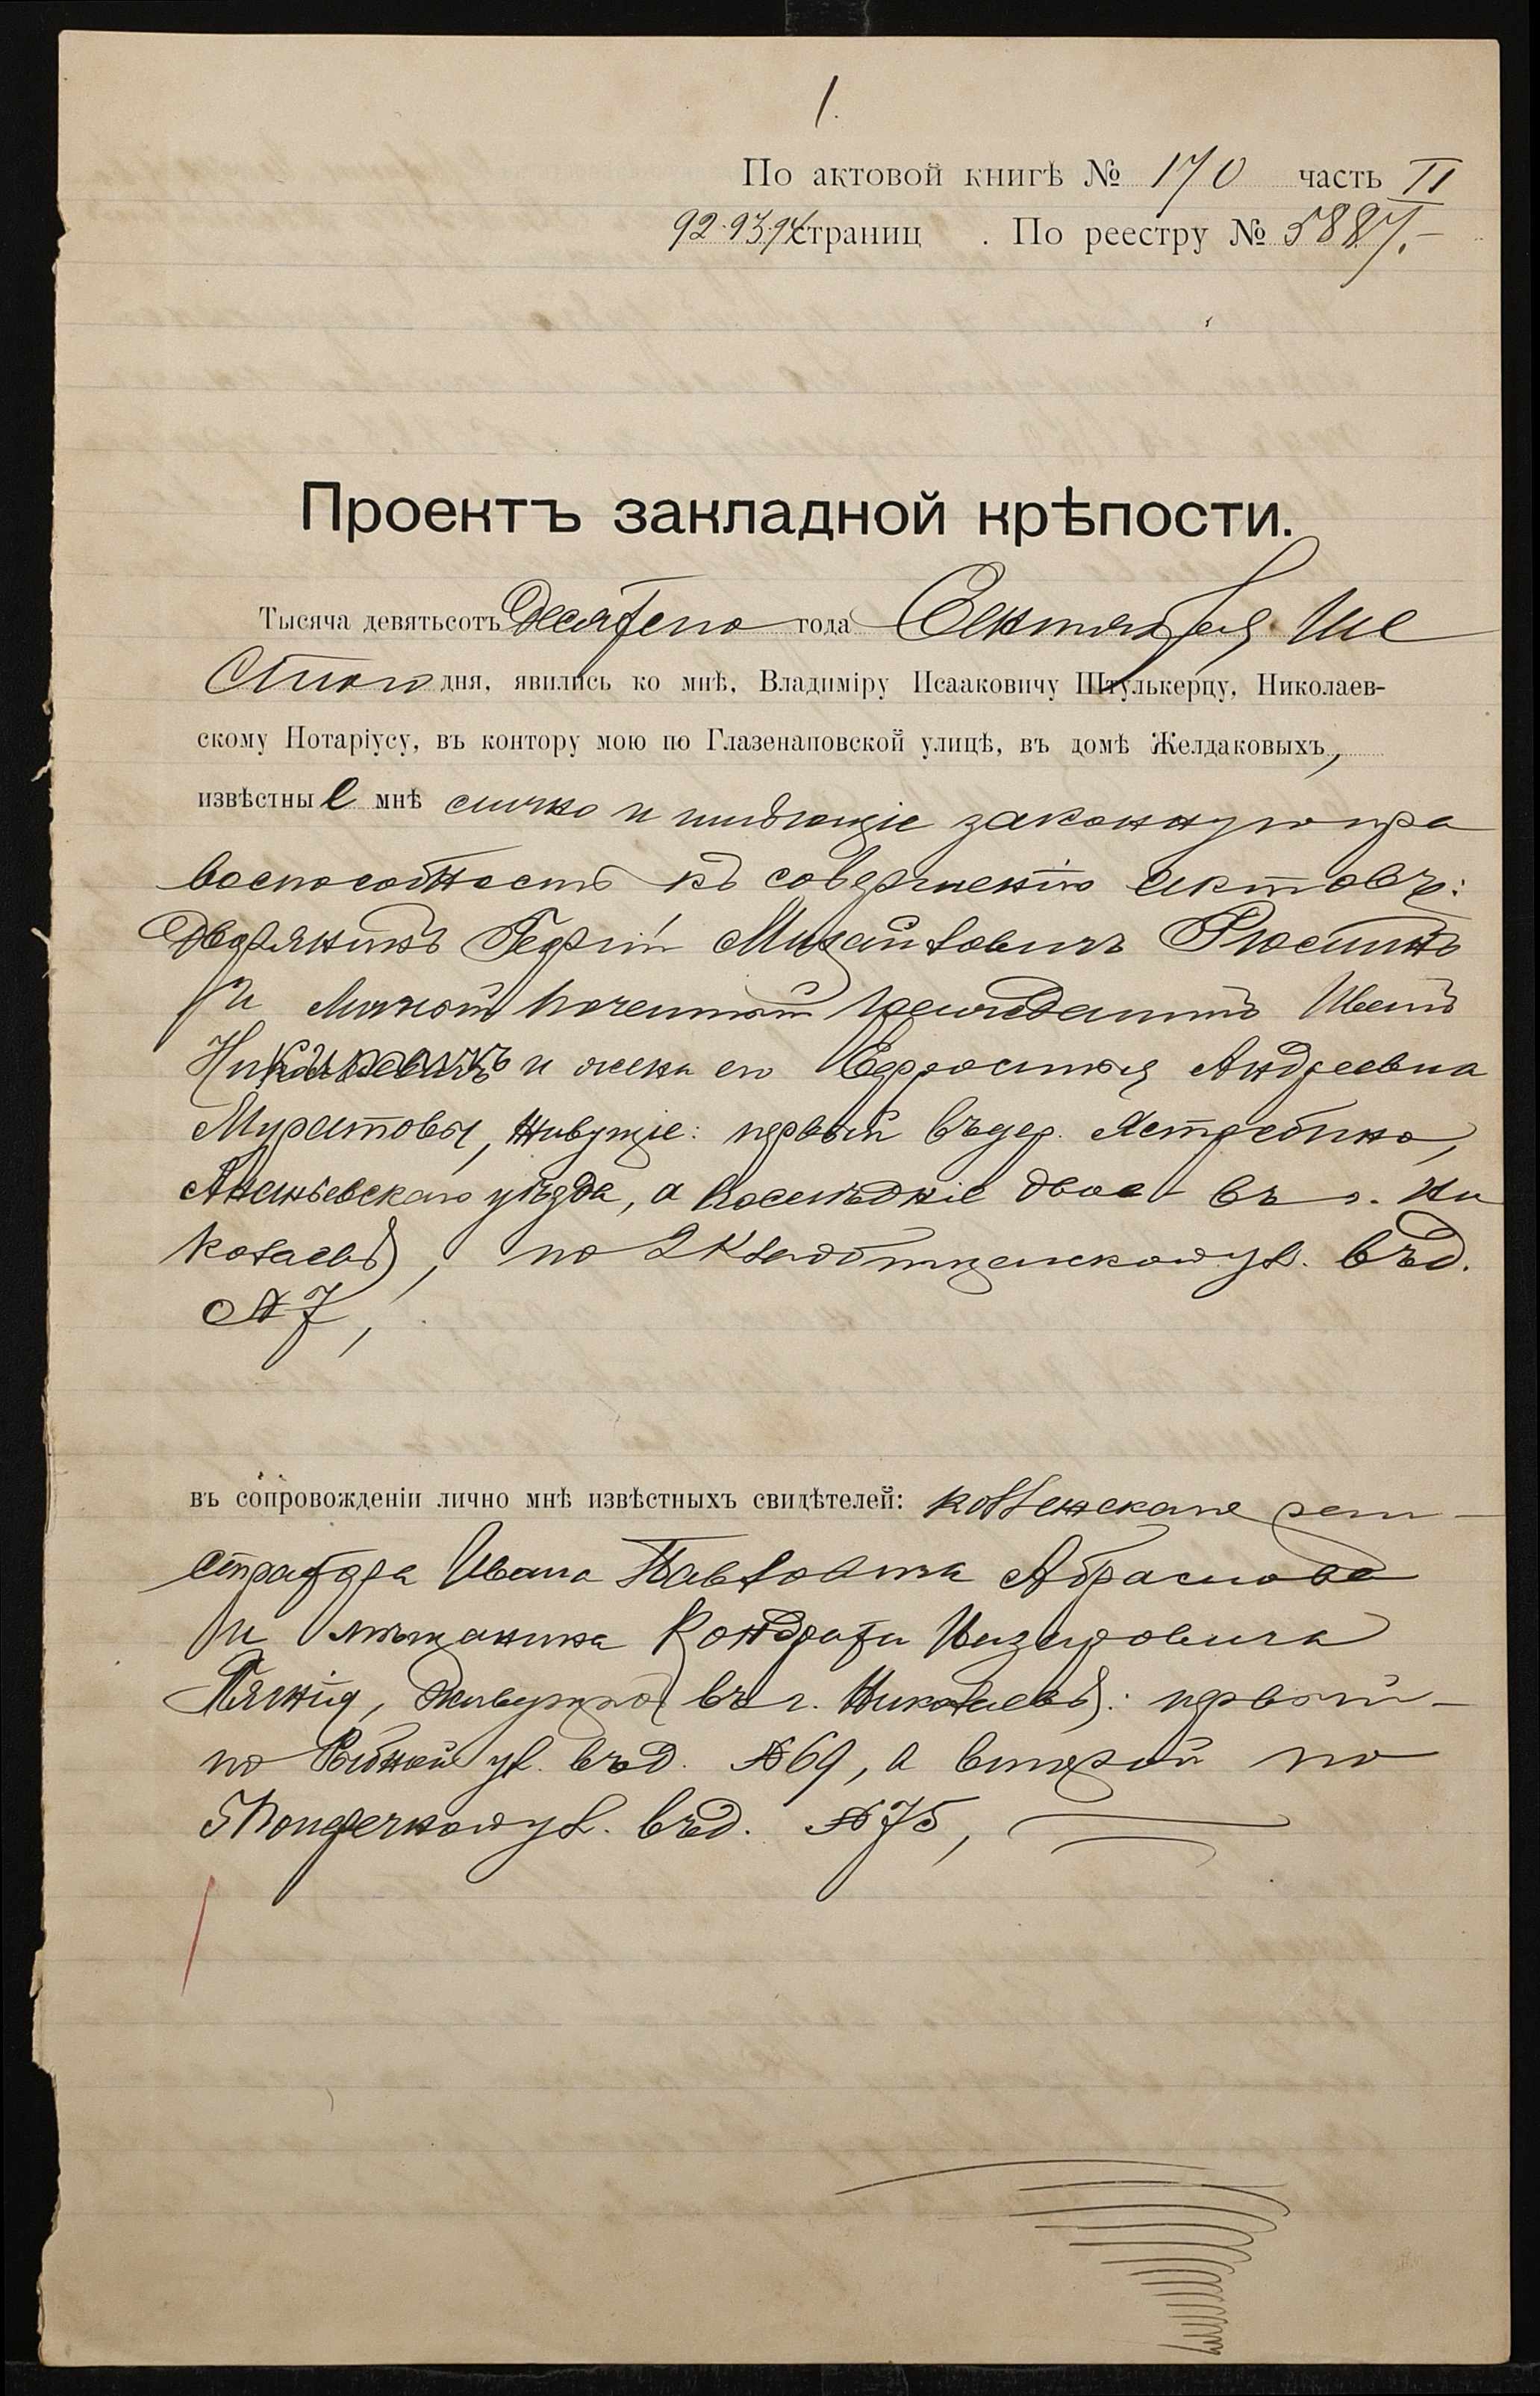 1.
По актовой книгѣ № 170 часть II
92.93.94 страниц . По реестру № 5887.-
Проектъ закладной крѣпости.
Тысяча девятьсотъ Десятаго года Сентября Ше
стого дня, явились ко мнѣ, Владиміру Исааковичу Штулькерцу, Николаев-
скому Нотаріусу, въ контору мою по Глазенаповской улицѣ, въ домѣ Желдаковыхъ,
извѣстные мнѣ лично и имѣющіе законную пра
воспособность къ совершенію актовъ:
Дворянинъ Георгій Михайловичъ
и Личной Почетной Гражданинъ Иванъ
и жена его Ефросинья Андреевна
Муратовы, живущіе: первый въ дер. Ястребино,
Ананьевскаго уѣзда, а последніе двое въ г. Ни
колаевѣ, по 2 Кладбищенской ул. въ д.
№ 7,
въ сопровожденіи лично мнѣ извѣстныхъ свидѣтелей: коллежскаго реги-
стратора Ивана Павловича Абрамова
и мѣщанина Кондратія
живущихъ въ г. Николаевѣ: первый -
по Рыбной ул. въ д. № 69, а второй по
5 Поперечной ул. въ д. № 75,